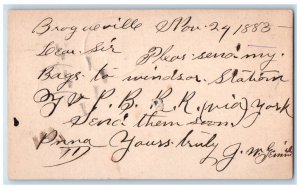 Brogueville Nov. 29 1883
Dear Sir
Pleas send my
Bags to windsor Station
N. C. R. R. via York
Send them soon
Penna Yours truly
J. W.